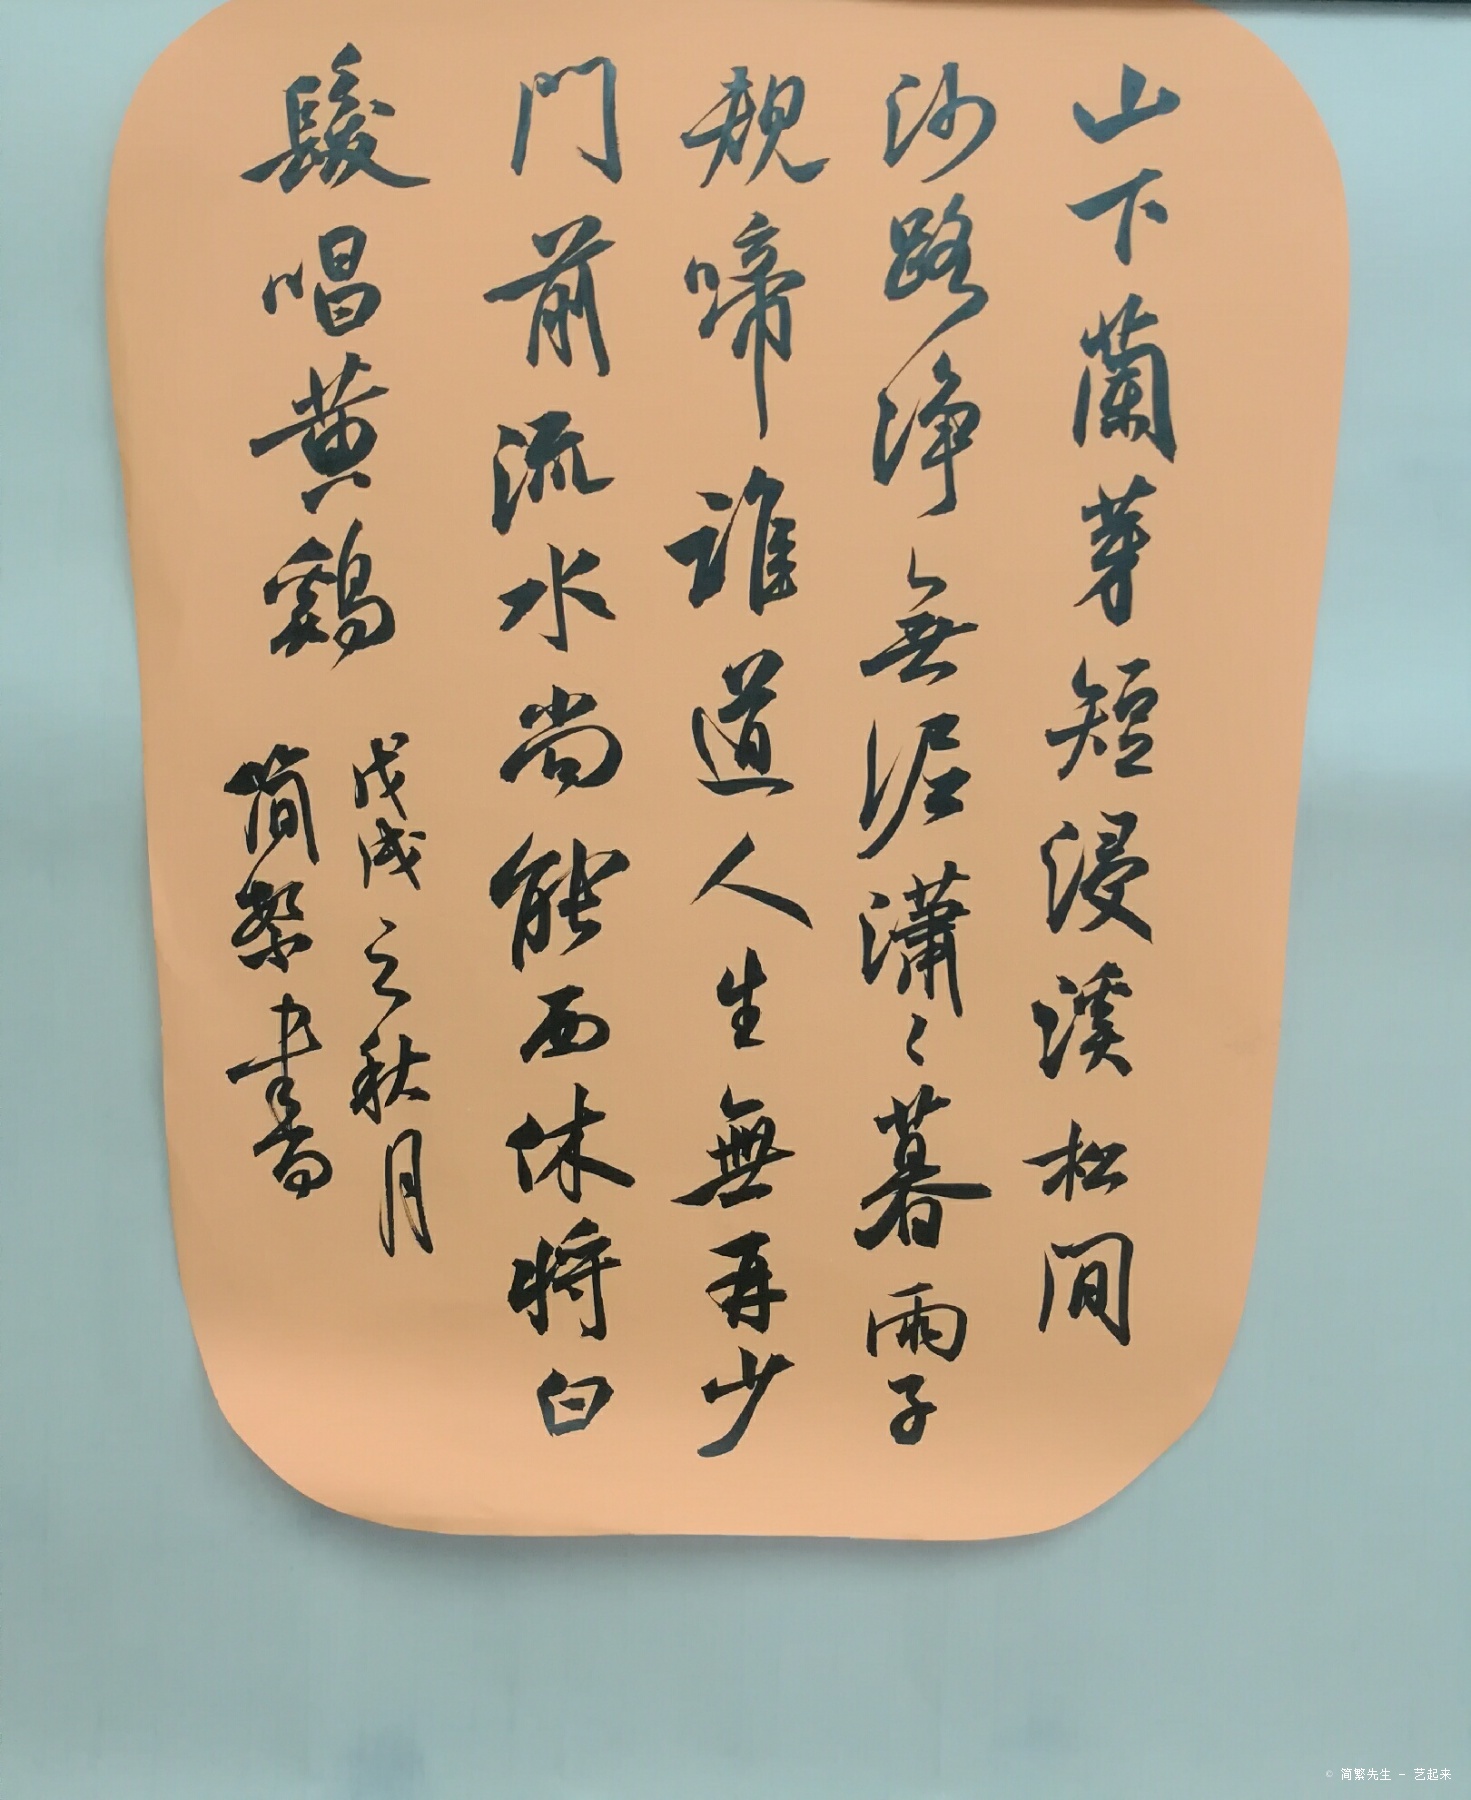 山下蘭芽短浸溪松間
沙路淨無泥瀟々暮雨子
規啼誰道人生無再少
門前流水尚能西休將白
髮唱黄鷄
戊戌之秋月
简繁書
© 简繁先生 - 艺起来